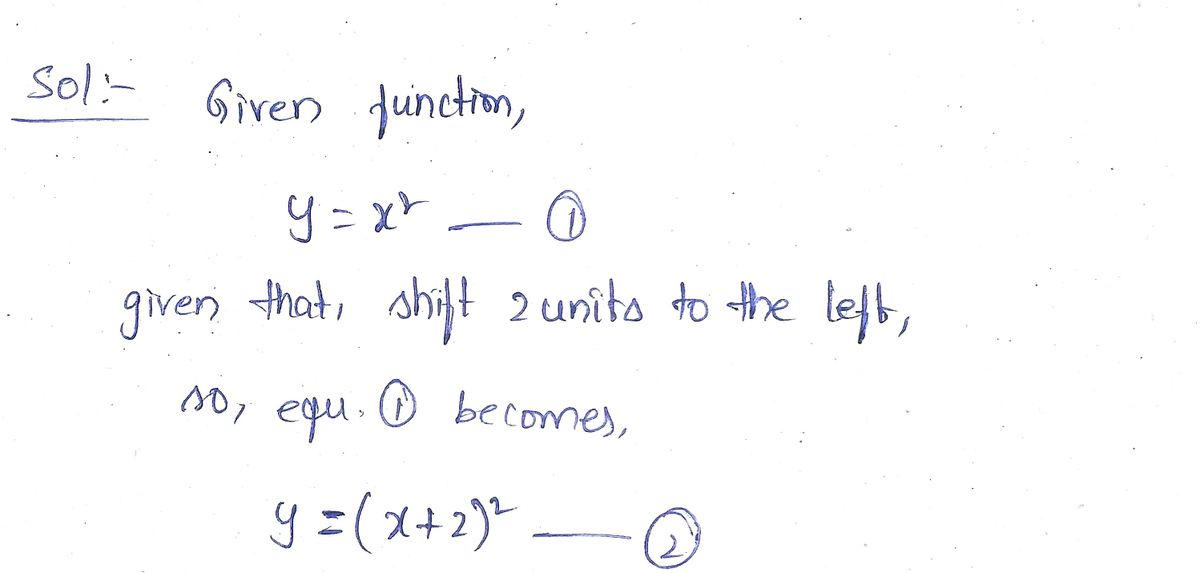 Sol:- Given function,
y = x² — ①
given that, shift 2 units to the left,
so, equ. ① becomes,
y = (x+2)² — ②